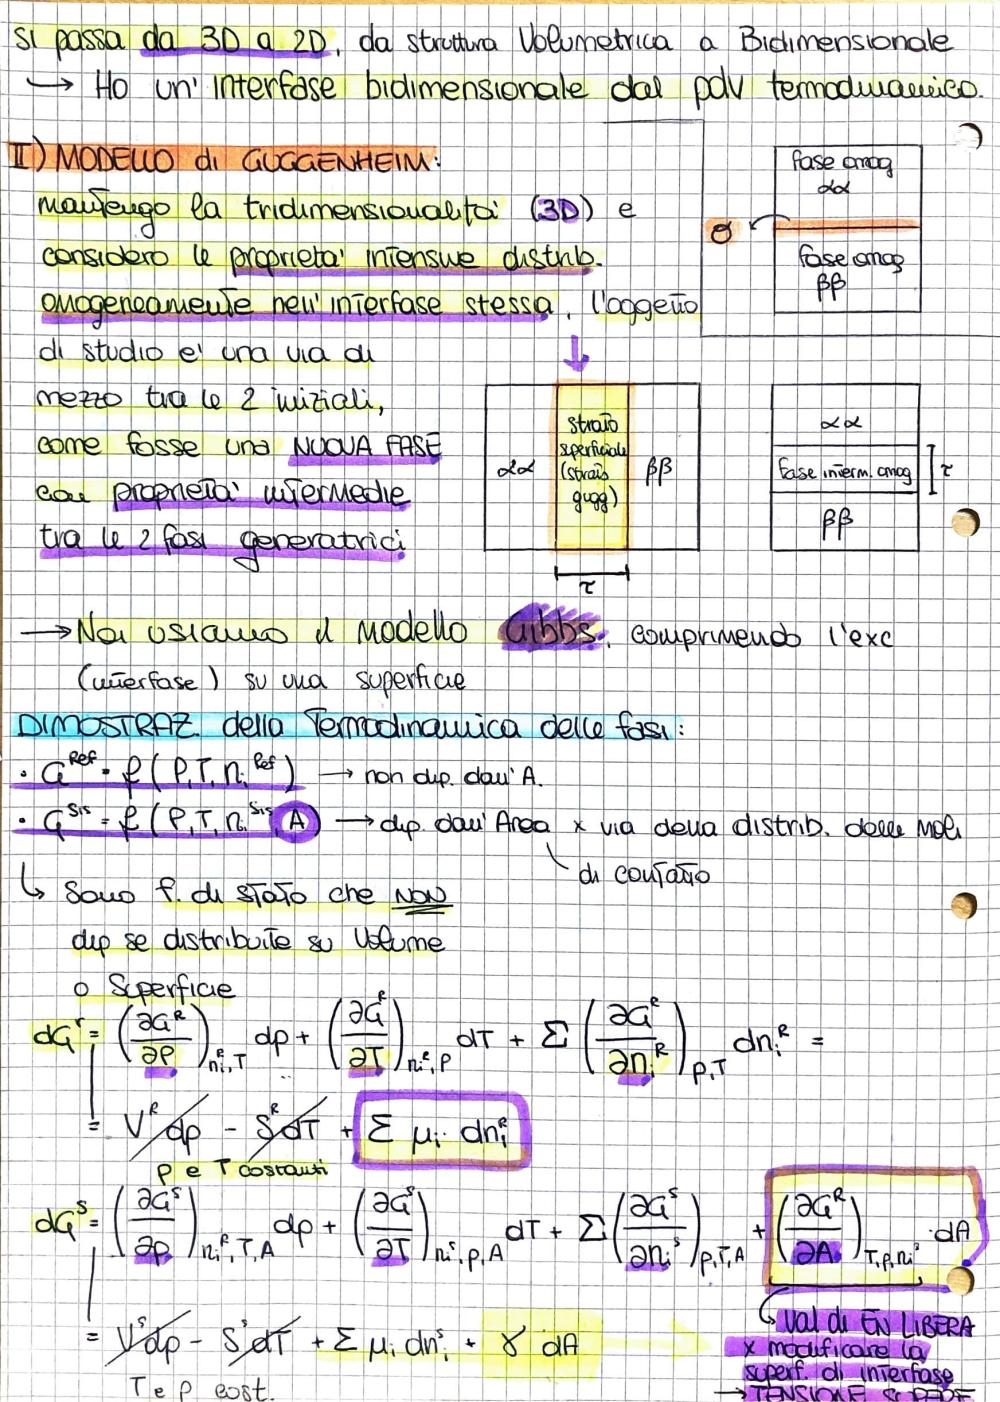 si passa da 3D a 2D, da struttura Volumetrica a Bidimensionale
→ Ho un' interfase bidimensionale dal pdv termodinamico.
II) MODELLO di GUGGENHEIM:
mantengo la tridimensionalità (3D) e
considero le proprieta' intensive distrib.
omogeneamente nell'interfase stessa, l'oggetto
di studio e' una via di
mezzo tra le 2 iniziali,
come fosse una NUOVA FASE
con proprieta' intermedie
tra le 2 fasi generatrici
fase omog
αα
σ
fase omog
ββ
αα
strato
superficiale
(strato
gugg)
ββ
τ
αα
fase interm. omog
ββ
τ
→ Noi usiamo il modello Gibbs, comprimendo l'exc
(interfase) su una superficie
DIMOSTRAZ. della Termodinamica delle fasi:
• G^Ref = f (P, T, ni^Ref) → non dip. dall'A.
• G^Sis = f (P, T, ni^Sis, A) → dip. dall'Area x via della distrib. delle Moli
di contatto
↳ Sono f. di stato che NON
dip se distribuite su Volume
o Superficie
dG^r = (∂G^R/∂P)_ni^R,T dp + (∂G^R/∂T)_ni^R,P dT + Σ (∂G^R/∂ni^R)_P,T dni^R =
= V^R dp - S^R dT + Σ μi dni^R
P e T costanti
dG^S = (∂G^S/∂p)_ni^R,T,A dp + (∂G^S/∂T)_ni^S,p,A dT + Σ (∂G^S/∂ni^S)_P,T,A + (∂G^R/∂A)_T,p,ni^S · dA
= V^S dp - S^S dT + Σ μi dni^S + γ dA
T e P cost.
↳ Val di EN LIBERA
x modificare la
superf. di interfase
→ TENSIONE